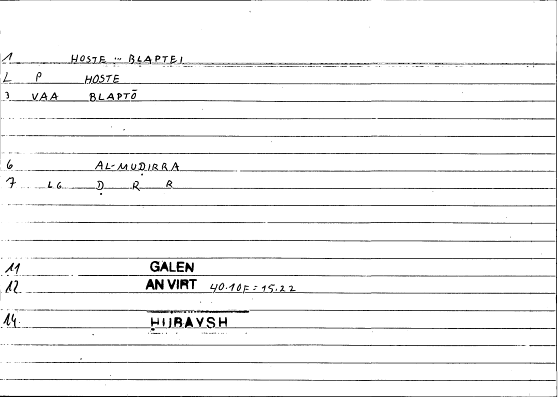 1 HOSTE ... BLAPTEI
2 P HOSTE
3 VAA BLAPTŌ
6 AL-MUḌIRRA
7 LG Ḍ R R
11 GALEN
12 AN VIRT 40.10F = 15.22
14 ḤUBAYSH